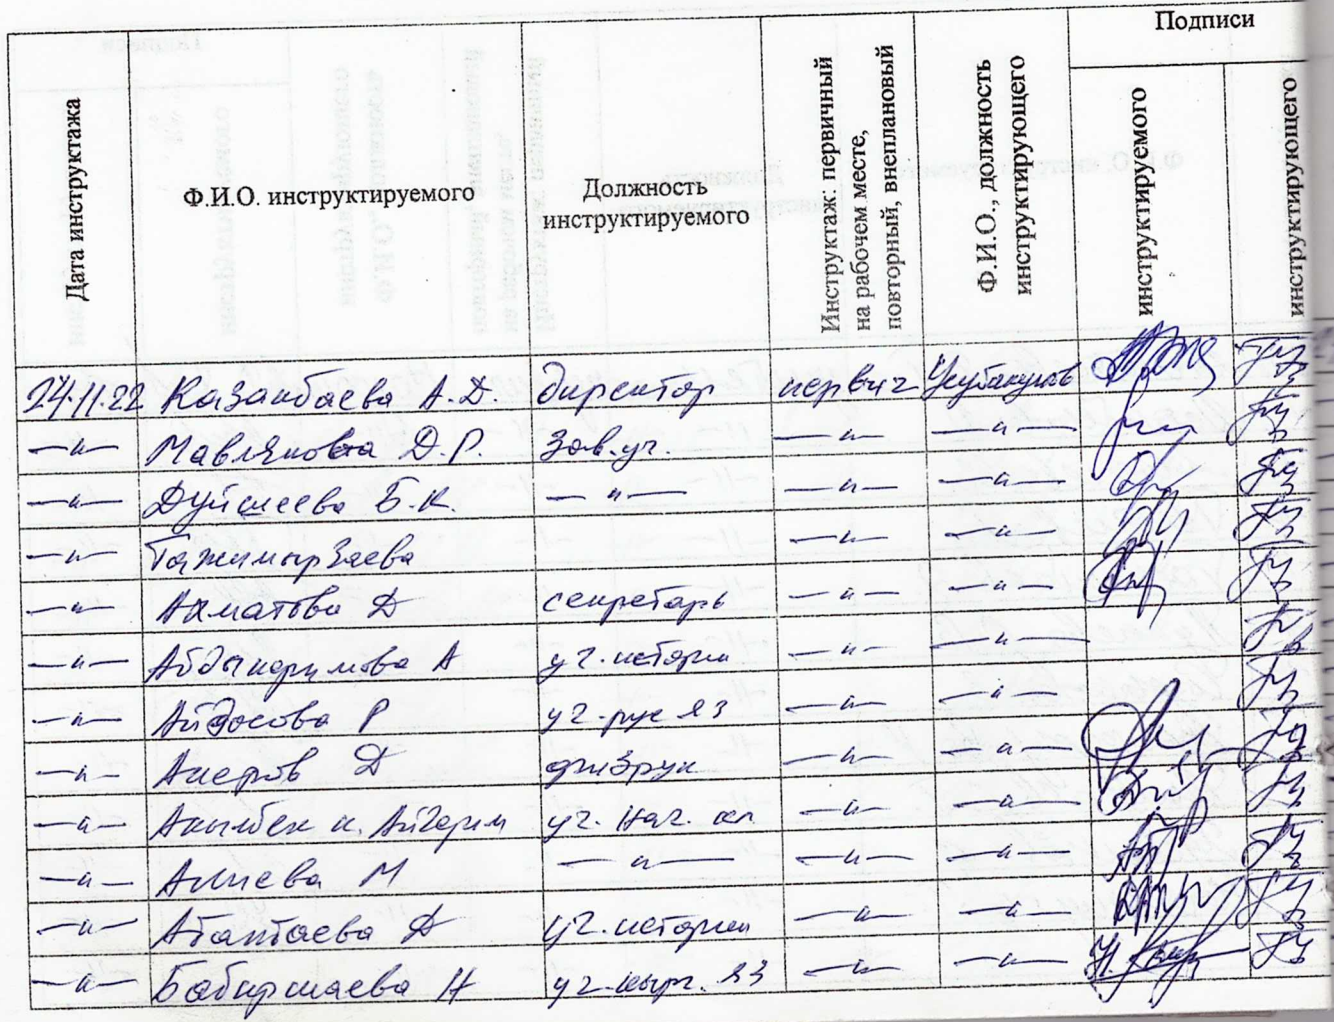 Дата инструктажа
Ф.И.О. инструктируемого
Должность
инструктируемого
Инструктаж: первичный
на рабочем месте,
повторный, внеплановый
Ф.И.О., должность
инструктирующего
Подписи
инструктируемого
инструктирующего
24.11.22 Казакбаева А.Д. директор первич Усубакунов
—"— Мавлянова Д.Р. Зав.уч. —"— —"—
—"— Дуйшеева Б.К. —"— —"— —"—
—"— Тажимырзаева —"— —"—
—"— Ахматова Д секретарь —"— —"—
—"— Абдыкеримова А уч.истории —"— —"—
—"— Айдосова Р уч.рус яз —"— —"—
—"— Акеров Д физрук —"— —"—
—"— Акылбек к. Айгерим уч. нач. кл. —"— —"—
—"— Алиева М —"— —"— —"—
—"— Атантаева Д уч.истории —"— —"—
—"— Бабиршаева Н уч.кырг. яз —"— —"—